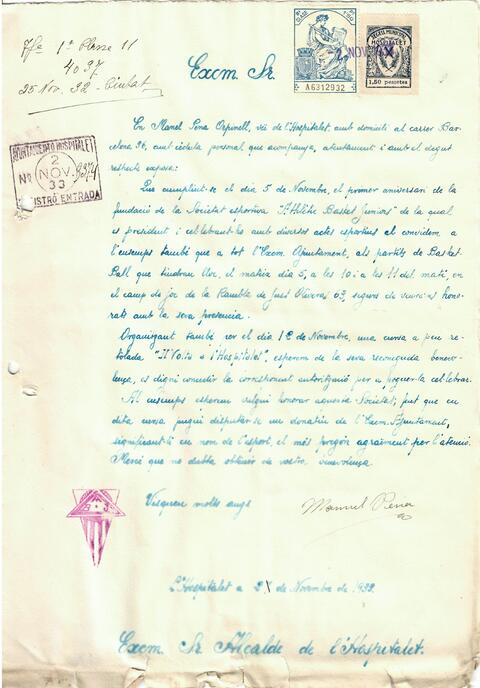 Excm. Sr.
A6312932
1,50 pesetas
4097
AYUNTAMIENTO HOSPITALET
2
NOV.
33
REGISTRO ENTRADA
En Manel Pena Orpinell, veí de l'Hospitalet amb domicili al carrer Bar-
celona 96, amb cédula personal que acompanya, atentament i amb el degut
respecte exposa:
Que cumplint-se el dia 5 de Novembre, el primer aniversari de la
fundació de la Societat esportiva "Athlètic Basket Juniors" de la qual
es president i celebrant-ho amb diversos actes esportius el convidem a
l'ensemps també que a tot l'Excm. Ajuntament, als partits de Basket-
Ball que tindran lloc, el mateix dia 5, a les 10 i a les 11 del matí, en
el camp de joc de la Rambla de Just Oliveras 63, segurs de veure'ns hono-
rats amb la seva presencia.
Organizant també per el dia 12 de Novembre, una cursa a peu re-
tolada "II Volta a l'Hospitalet", esperem de la seva reconeguda benevo-
lença, es digni concedir la corresponent autorització per a poguer-la celebrar.
Al ensemps esperem vulgui honorar aquesta Societat, fent que en
dita cursa pugui disputar-se un donatiu de l'Excm. Ajuntament,
significant-li en nom de l'esport, el més pregón agraiment per l'atenció.
Mercé que no dubta obtenir de vostra benevolença.
Visqueu molts anys
Manuel Pena
L'Hospitalet a 2 de Novembre de 1933.
Excm. Sr. Alcalde de l'Hospitalet.